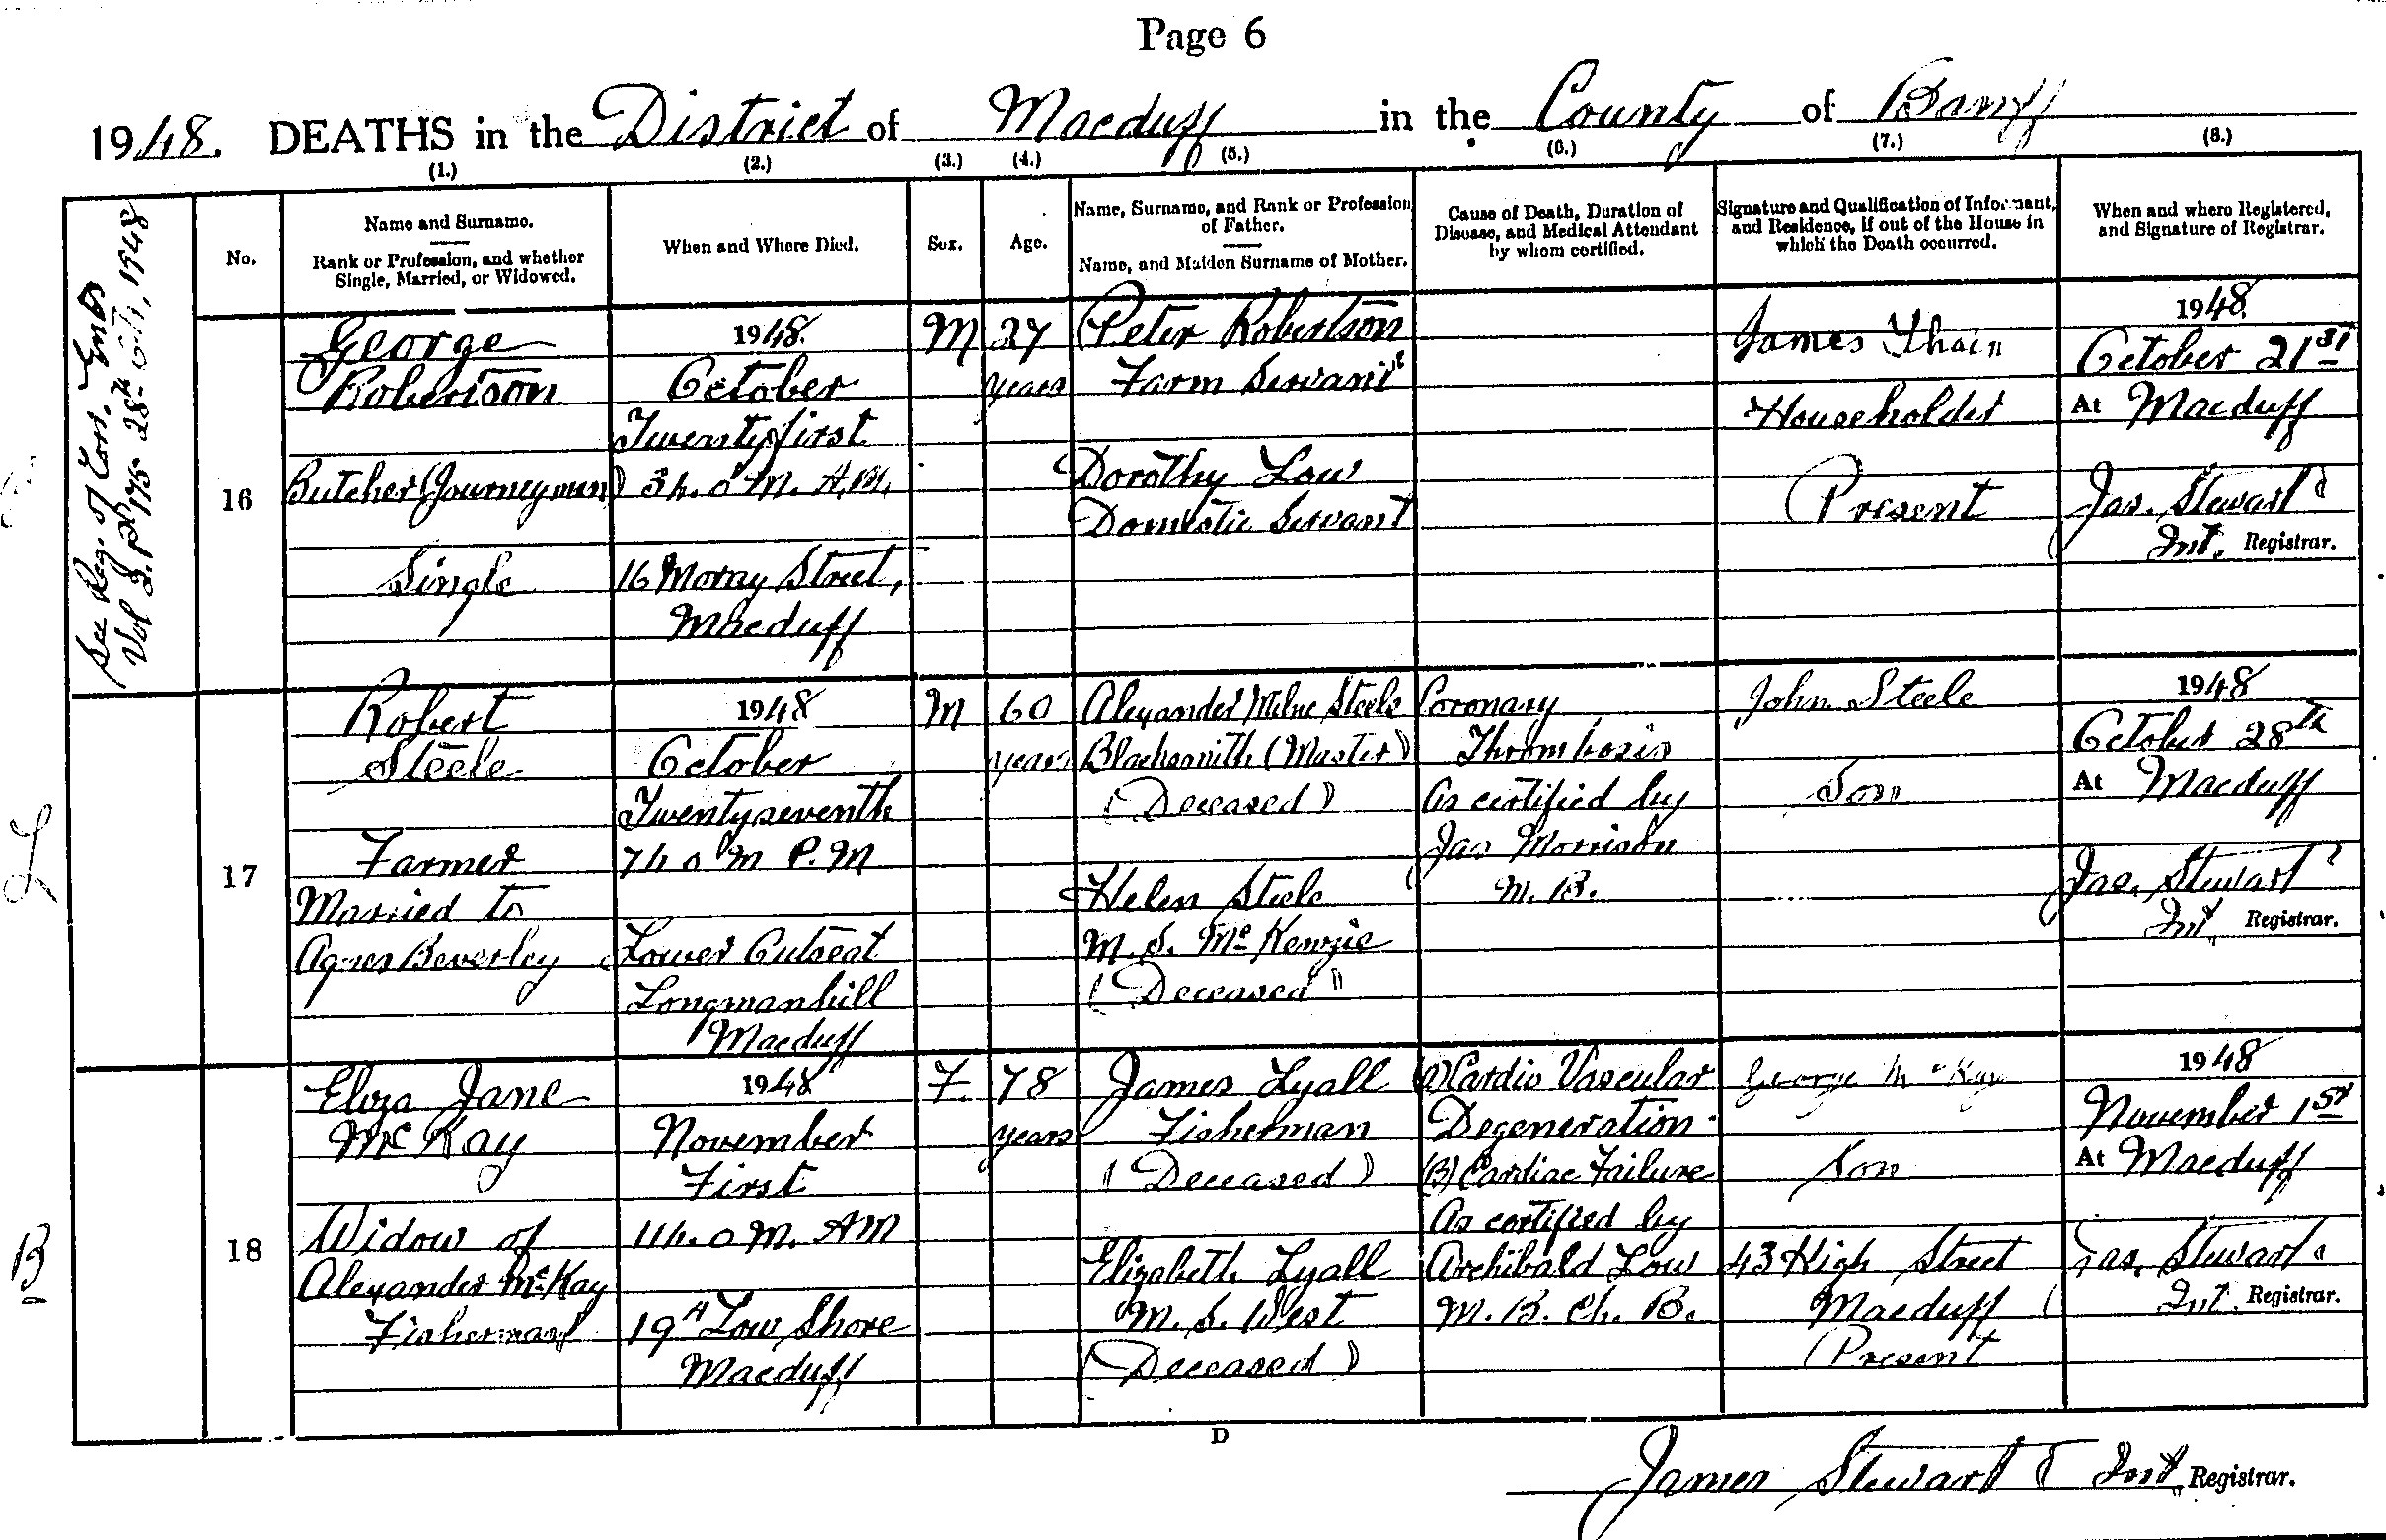 Page 6
1948. DEATHS in the District of Macduff in the County of Banff
(1.) (2.) (3.) (4.) (5.) (6.) (7.) (8.)
No.
Name and Surname.
Rank or Profession, and whether
Single, Married, or Widowed.
When and Where Died.
Sex.
Age.
Name, Surname, and Rank or Profession
of Father.
Name, and Maiden Surname of Mother.
Cause of Death, Duration of
Disease, and Medical Attendant
by whom certified.
Signature and Qualification of Informant,
and Residence, if out of the House in
which the Death occurred.
When and where Registered,
and Signature of Registrar.
See Reg. of Corr. Ents
Vol 3. P 175 28th Oct, 1948
16
George
Robertson
Butcher (Journeyman)
Single
1948.
October
Twenty first
3 h. 0 M. A.M.
16 Moray Street,
Macduff
M
27
years
Peter Robertson
Farm Servant
Dorothy Low
Domestic Servant
James Thain
Householder
(Present)
1948.
October 21st
At Macduff
Jas. Stewart
Int. Registrar.
L
17
Robert
Steele
Farmer
Married to
Agnes Beverley
1948
October
Twenty seventh
7 h 0 M P.M
Lower Cutseat
Longmanhill
Macduff
M
60
years
Alexander Milne Steele
Blacksmith (Master)
(Deceased)
Helen Steele
M. S. McKenzie
(Deceased)
Coronary
Thrombosis
As certified by
Jas Morrison
M. B.
John Steele
Son
1948
October 28th
At Macduff
Jas. Stewart
Int. Registrar.
B
18
Eliza Jane
McKay
Widow of
Alexander McKay
Fisherman
1948
November
First
11 h. 0 M. AM
19A Low Shore
Macduff
F.
78
years
James Lyall
Fisherman
(Deceased)
Elizabeth Lyall
M. S. West
(Deceased)
(A) Cardio Vascular
Degeneration.
(B) Cardiac Failure
As certified by
Archibald Low
M. B. Ch. B.
George McKay
Son
43 High Street
Macduff
(Present
1948
November 1st
At Macduff
Jas. Stewart
Int. Registrar.
D
James Stewart Int. Registrar.